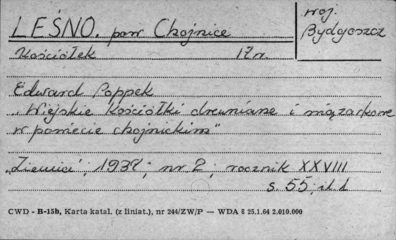 LEŚNO. pow Chojnice
woj.
Bydgoszcz
Kościółek 17 w.
Edward Poppek
„Wiejskie kościółki drewniane i mązarkowe
w powiecie chojnickim"
„Ziemia", 1937, nr. 2, rocznik XXVIII
s. 55; il. 1
CWD - B-15b, Karta katal. (z liniat.), nr 244/ZW/P — WDA 8 25.1.64 2.010.000